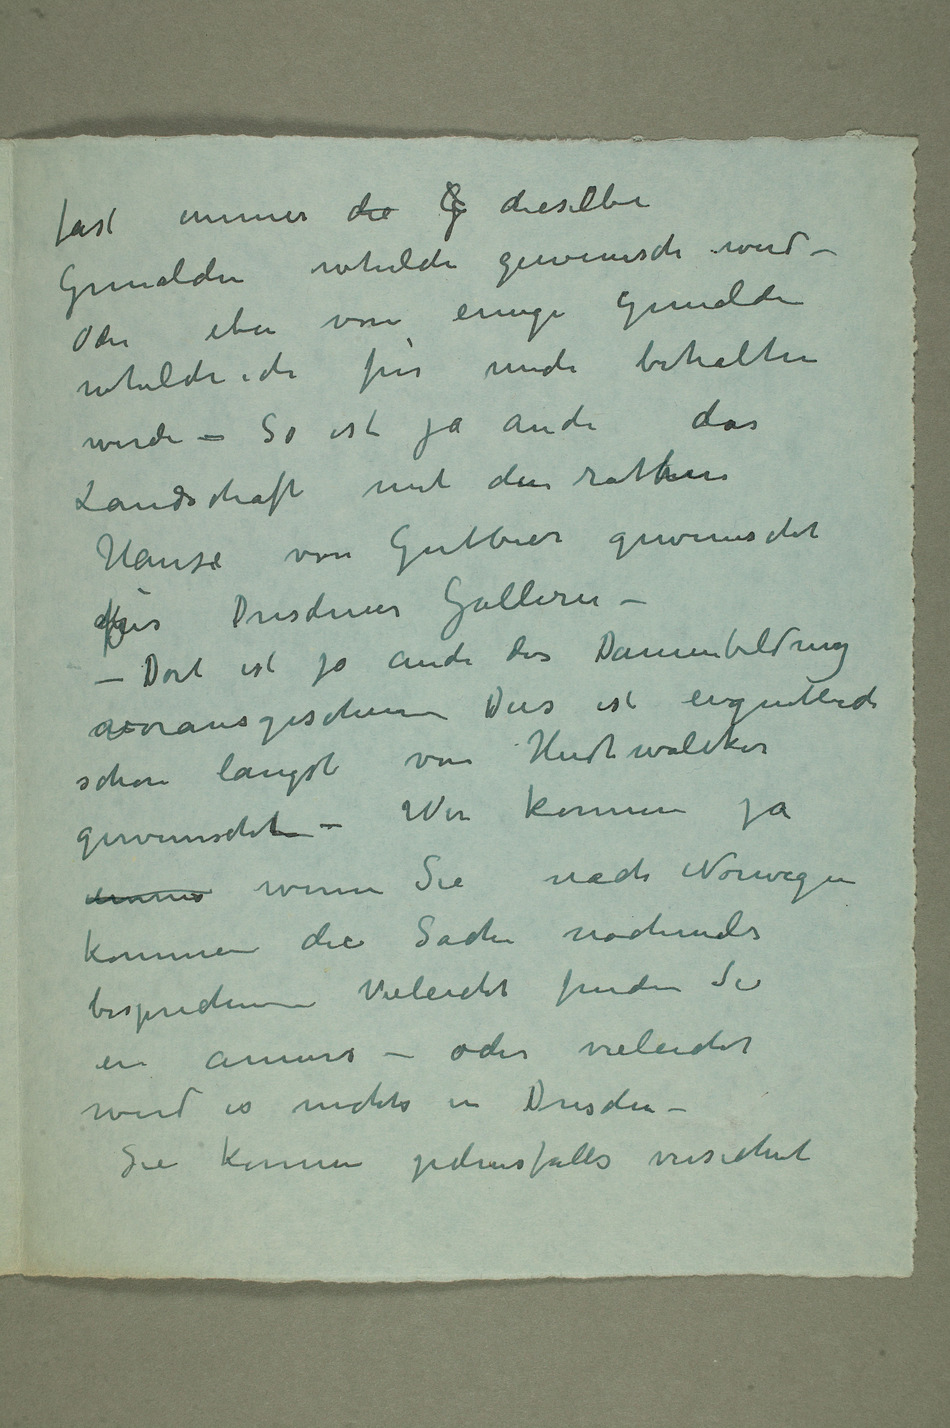 fast immer die G dieselbe
Gemälden welche gewünscht wird –
Oder eben von einige Gemälden
welche ich für mich behalten
werde – So ist ja auch das
Landschaft mit den rothen
Hause von Gutbier gewünscht
für Dresdener Gallerie –
– Dort ist ja auch das Damenbildniss
vorausgesehen Dies ist eigentlich
schon längst von Hudtwalcker
gewünscht – Wir können ja
immer wenn Sie nach Norwegen
kommen die Sache nochmals
besprechen Vieleicht finden Sie
ein anners – oder vieleicht
wird es nichts in Dresden –
Sie können jedenfalls versichert